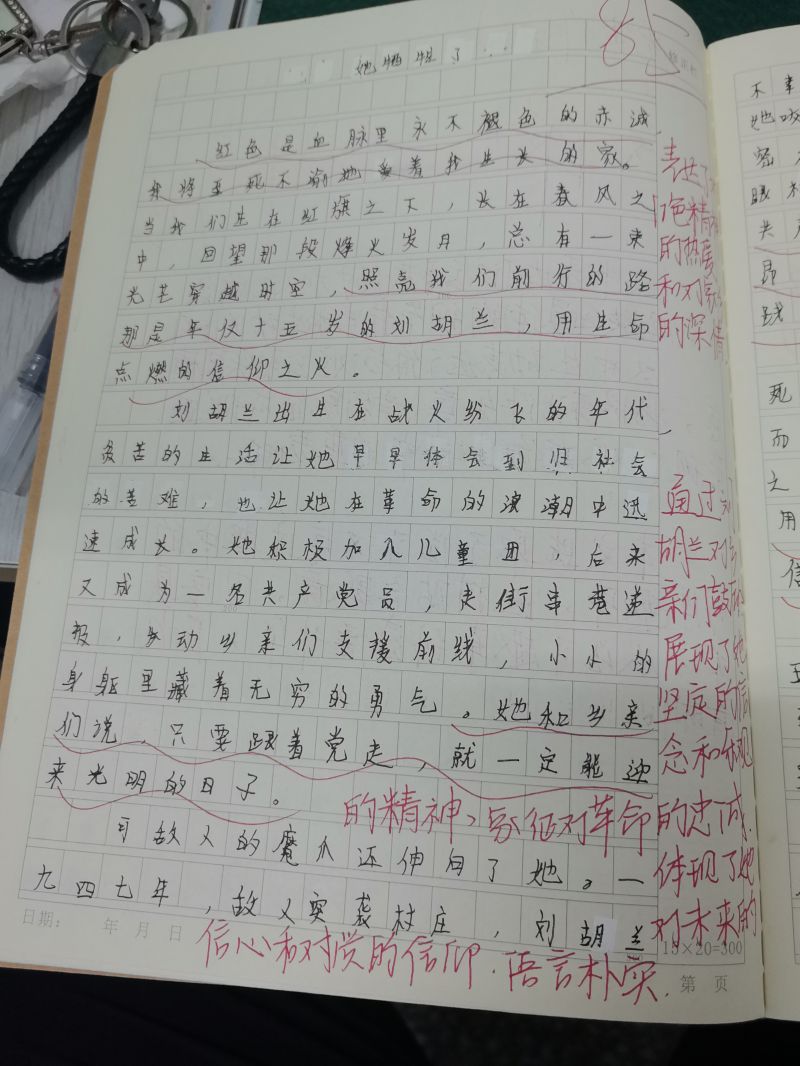 她牺牲了...
85
红色是血脉里永不褪色的赤诚,
我将至死不渝地爱着我生长的家。
当我们生在红旗之下,长在春风之
中,回望那段烽火岁月,总有一束
光芒穿越时空,照亮我们前行的路
那是年仅十五岁的刘胡兰,用生命
点燃的信仰之火。
刘胡兰出生在战火纷飞的年代,
贫苦的生活让她早早体会到旧社会
的苦难,也让她在革命的浪潮中迅
速成长。她积极加入儿童团,后来
又成为一名共产党员,走街串巷递
报,发动乡亲们支援前线,小小的
身躯里藏着无穷的勇气。她和乡亲
们说,只要跟着党走,就一定能迎
来光明的日子。
可敌人的魔爪还伸向了她。一
九四七年,敌人突袭村庄,刘胡兰
表达了
色精神
的热爱
和对家
的深情
通过刘
胡兰对乡
亲们鼓励
展现了她
坚定的信
念和乐观
的精神、象征对革命的忠诚.
体现了她
对未来的
信心和对党的信仰.语言朴实.
日期: 年 月 日
15×20=300
第 页
不幸
她咬
密
眼
共
昂
战
死
而
之
用
信